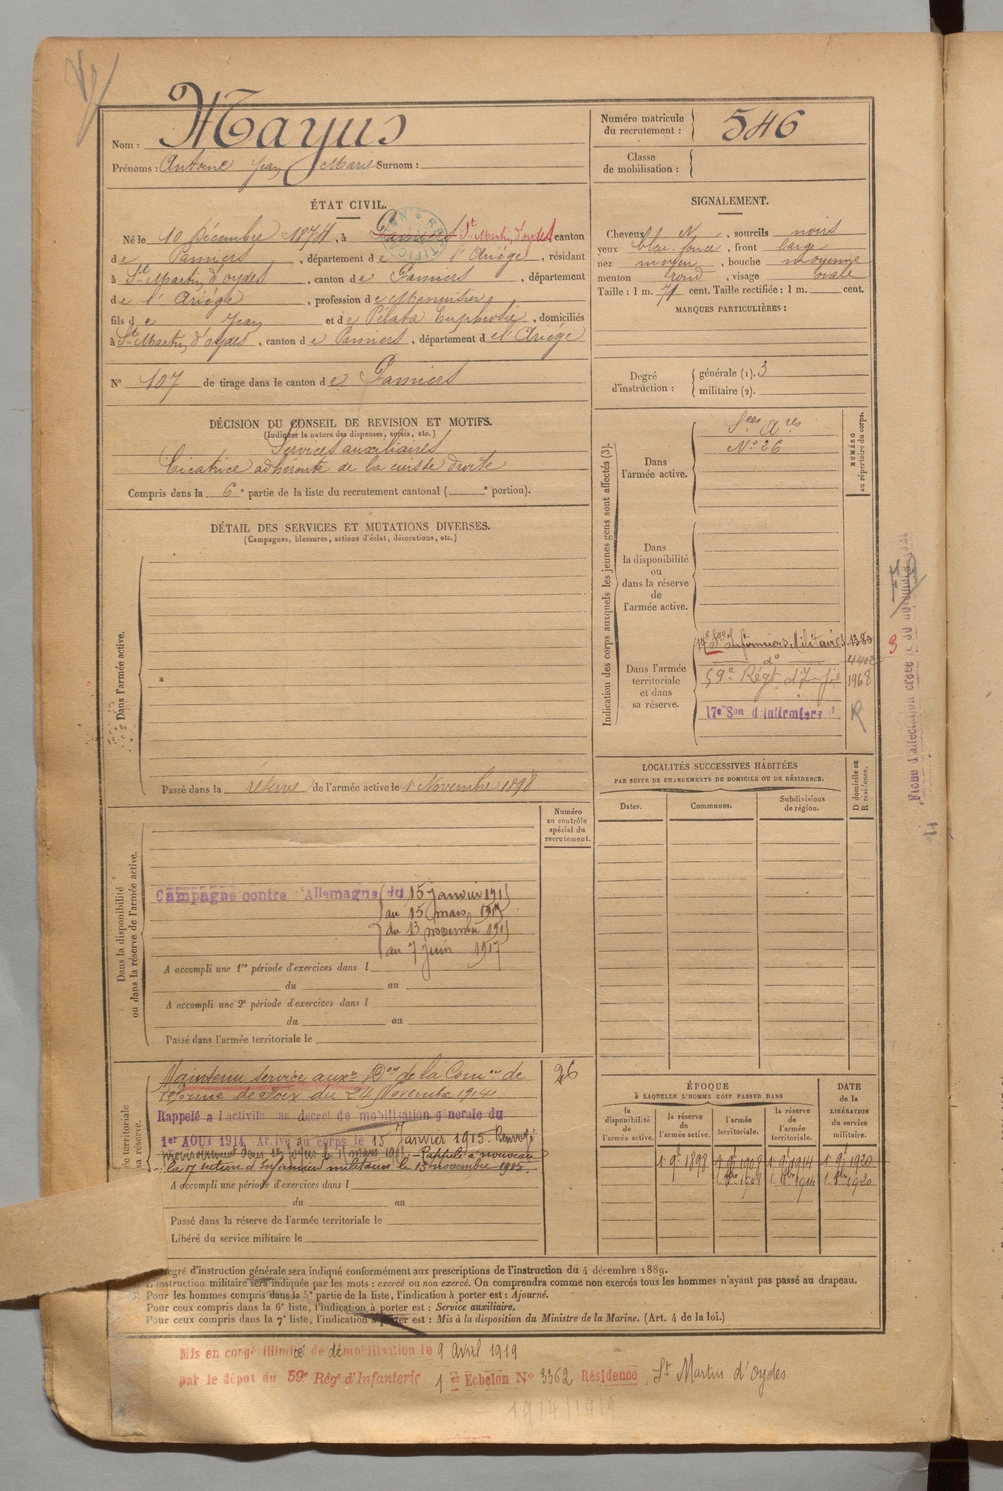 Nom : Mayus
Prénoms : Antoine Jean Marie Surnom :
Numéro matricule
du recrutement : 546
Classe
de mobilisation :
ÉTAT CIVIL.
Né le 10 Décembre 1874, à Pamiers St Martin d'oydes canton
de Pamiers, département de l'Ariège, résidant
à St Martin d'oydes, canton de Pamiers, département
de l'Ariège, profession de Menuisier,
fils de Jean et de Pélata Euphrosie, domiciliés
à St Martin d'oydes, canton de Pamiers, département de l'Ariège
N° 107 de tirage dans le canton de Pamiers
SIGNALEMENT.
Cheveux N, sourcils noirs
yeux bleu foncé, front large
nez moyen, bouche moyenne
menton rond, visage ovale
Taille : 1 m. 71 cent. Taille rectifiée : 1 m. cent.
MARQUES PARTICULIÈRES :
Degré
d'instruction :
générale (1). 3
militaire (2).
DÉCISION DU CONSEIL DE REVISION ET MOTIFS.
(Indiquer la nature des dispenses, sursis, etc.)
Services auxiliaires
Cicatrice adhérente de la cuisse droite
Compris dans la 6e partie de la liste du recrutement cantonal ( e portion).
DÉTAIL DES SERVICES ET MUTATIONS DIVERSES.
(Campagnes, blessures, actions d'éclat, décorations, etc.)
Dans l'armée active.
Passé dans la réserve de l'armée active le 1 Novembre 1898
Indication des corps auxquels les jeunes gens sont affectés (3).
NUMÉRO
au répertoire du corps.
Dans
l'armée active.
Sces Ares
N° 26
Dans
la disponibilité
ou
dans la réserve
de
l'armée active.
Dans l'armée
territoriale
et dans
sa réserve.
17e Son Infirmiers Militaires 1380
do
59e Régt d'Inf ie 1968
17e Son d'Infirmiers R
3
LOCALITÉS SUCCESSIVES HABITÉES
PAR SUITE DE CHANGEMENTS DE DOMICILE OU DE RÉSIDENCE.
D domicile ou
R résidence.
Dates. Communes. Subdivisions
de région.
Numéro
au contrôle
spécial du
recrutement.
Dans la disponibilité
ou dans la réserve de l'armée active.
Campagne contre l'Allemagne du 15 janvier 1915
au 15 mars 1915
du 13 novembre 1915
au 7 Juin 1917
A accompli une 1re période d'exercices dans l
du au
A accompli une 2e période d'exercices dans l
du au
Passé dans l'armée territoriale le
territoriale
sa réserve.
Maintenu service auxre Don de la Comon de 26
réforme de Foix du 24 Novembre 1914
Rappelé à l'activité au décret de mobilisation générale du
1er AOUT 1914 Arrivé au corps le 15 Janvier 1915. Renvoyé
provisoirement dans ses foyers le 15 mars 1915. Rappelé à nouveau
à la 17 section d'Infirmiers militaires le 13 novembre 1915.
A accompli une période d'exercices dans l
du au
Passé dans la réserve de l'armée territoriale le
Libéré du service militaire le
ÉPOQUE
À LAQUELLE L'HOMME DOIT PASSER DANS
DATE
de la
LIBÉRATION
du service
militaire.
la
disponibilité
de
l'armée active.
la réserve
de
l'armée active.
l'armée
territoriale.
la réserve
de
l'armée
territoriale.
1. 9e 1898 1. 9e 1908 1. 9e 1914 1. 9e 1920
1. 8bre 1908 1. 8bre 1914 1. 8bre 1920
degré d'instruction générale sera indiqué conformément aux prescriptions de l'instruction du 4 décembre 1889.
L'instruction militaire sera indiquée par les mots : exercé ou non exercé. On comprendra comme non exercés tous les hommes n'ayant pas passé au drapeau.
Pour les hommes compris dans la 5e partie de la liste, l'indication à porter est : Ajourné.
Pour ceux compris dans la 6e liste, l'indication à porter est : Service auxiliaire.
Pour ceux compris dans la 7e liste, l'indication à porter est : Mis à la disposition du Ministre de la Marine. (Art. 4 de la loi.)
Mis en congé illimité de démobilisation le 9 Avril 1919
par le dépôt du 59e Rég d'Infanterie 1 er Echelon N° 3362 Résidence St Martin d'Oydes